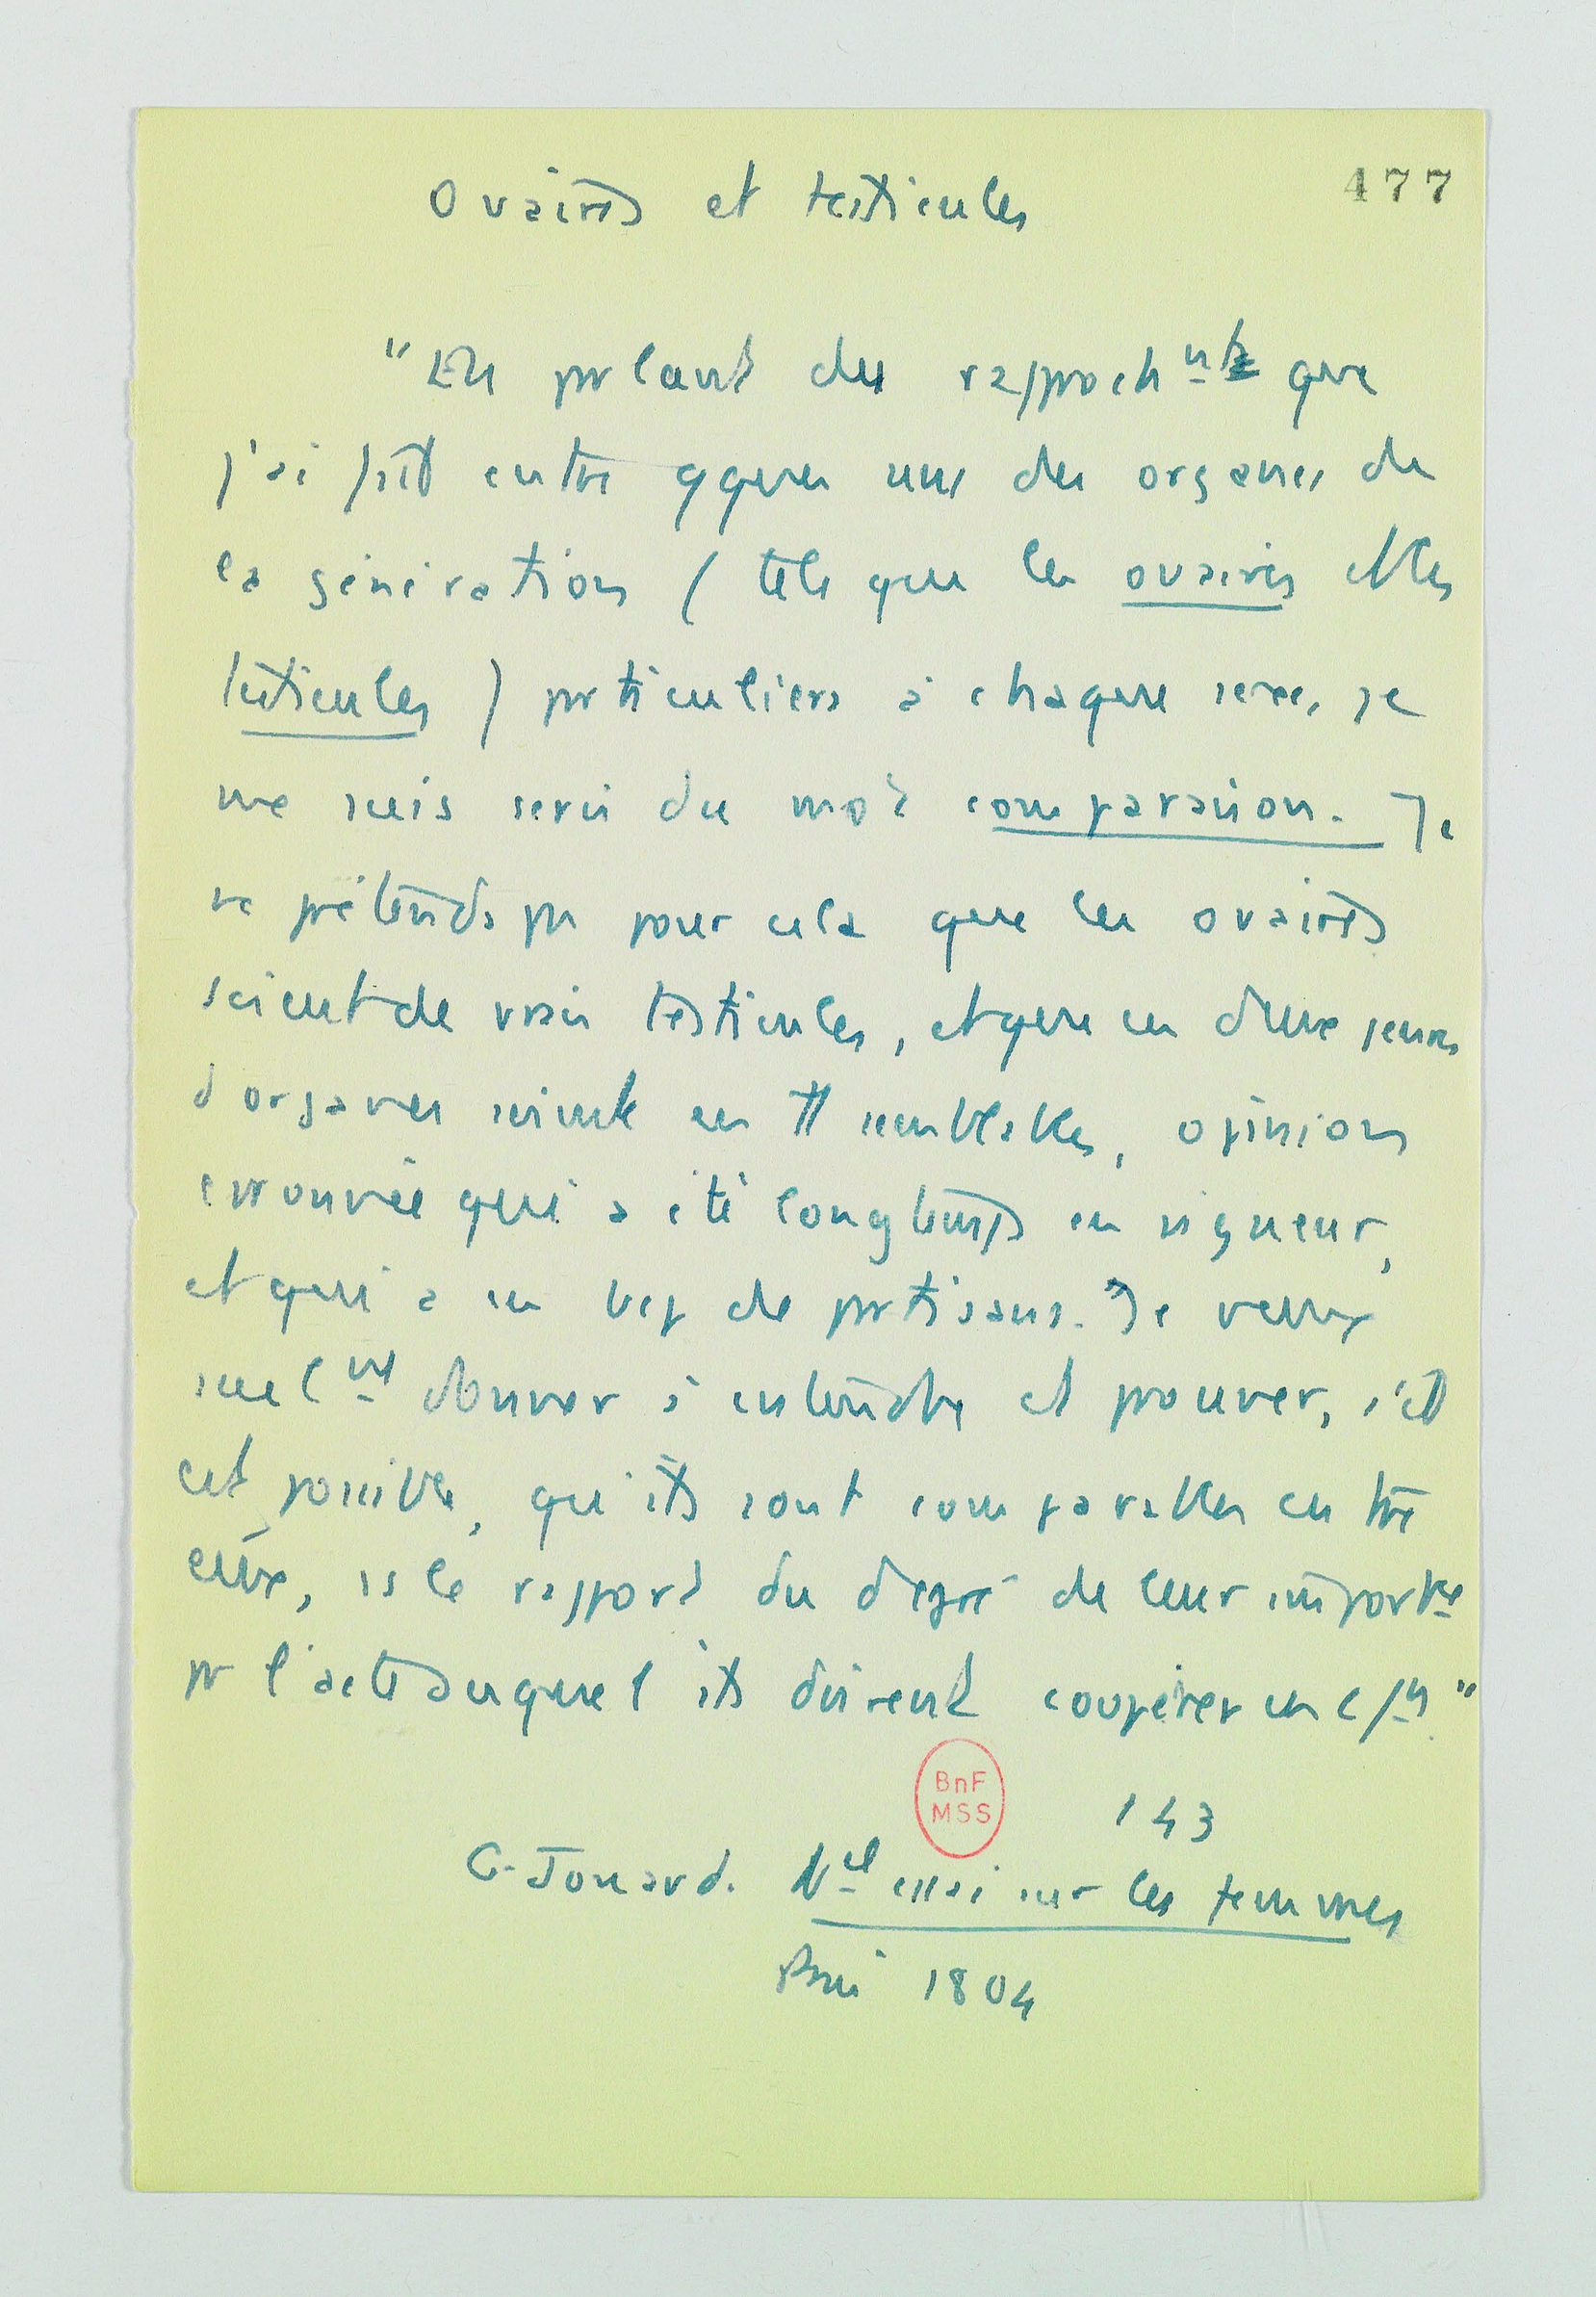 Ovaires et testicules
477
"En parlant des rapprochnts que
j'ai fait entre qques uns des organes de
la génération (tels que les ovaires et les
testicules) particuliers à chaque sexe, je
me suis servi du mot comparaison. Je
ne prétends pas pour cela que les ovaires
soient de vrais testicules, et que ces deux genres
d'organes soient en tt semblables, opinion
erronnée qui a été longtemps en vigueur,
et qui a eu bcp de partisans. Je veux
seulnt donner à entendre et prouver, s'il
est possible, qu'ils sont comparables entre
eux, ss le rapport du degré de leur importce
pr l'acte auquel ils doivent coopérer en c/n"
BnF
MSS
143
G. Jouard. Nel essai sur les femmes
Paris 1804